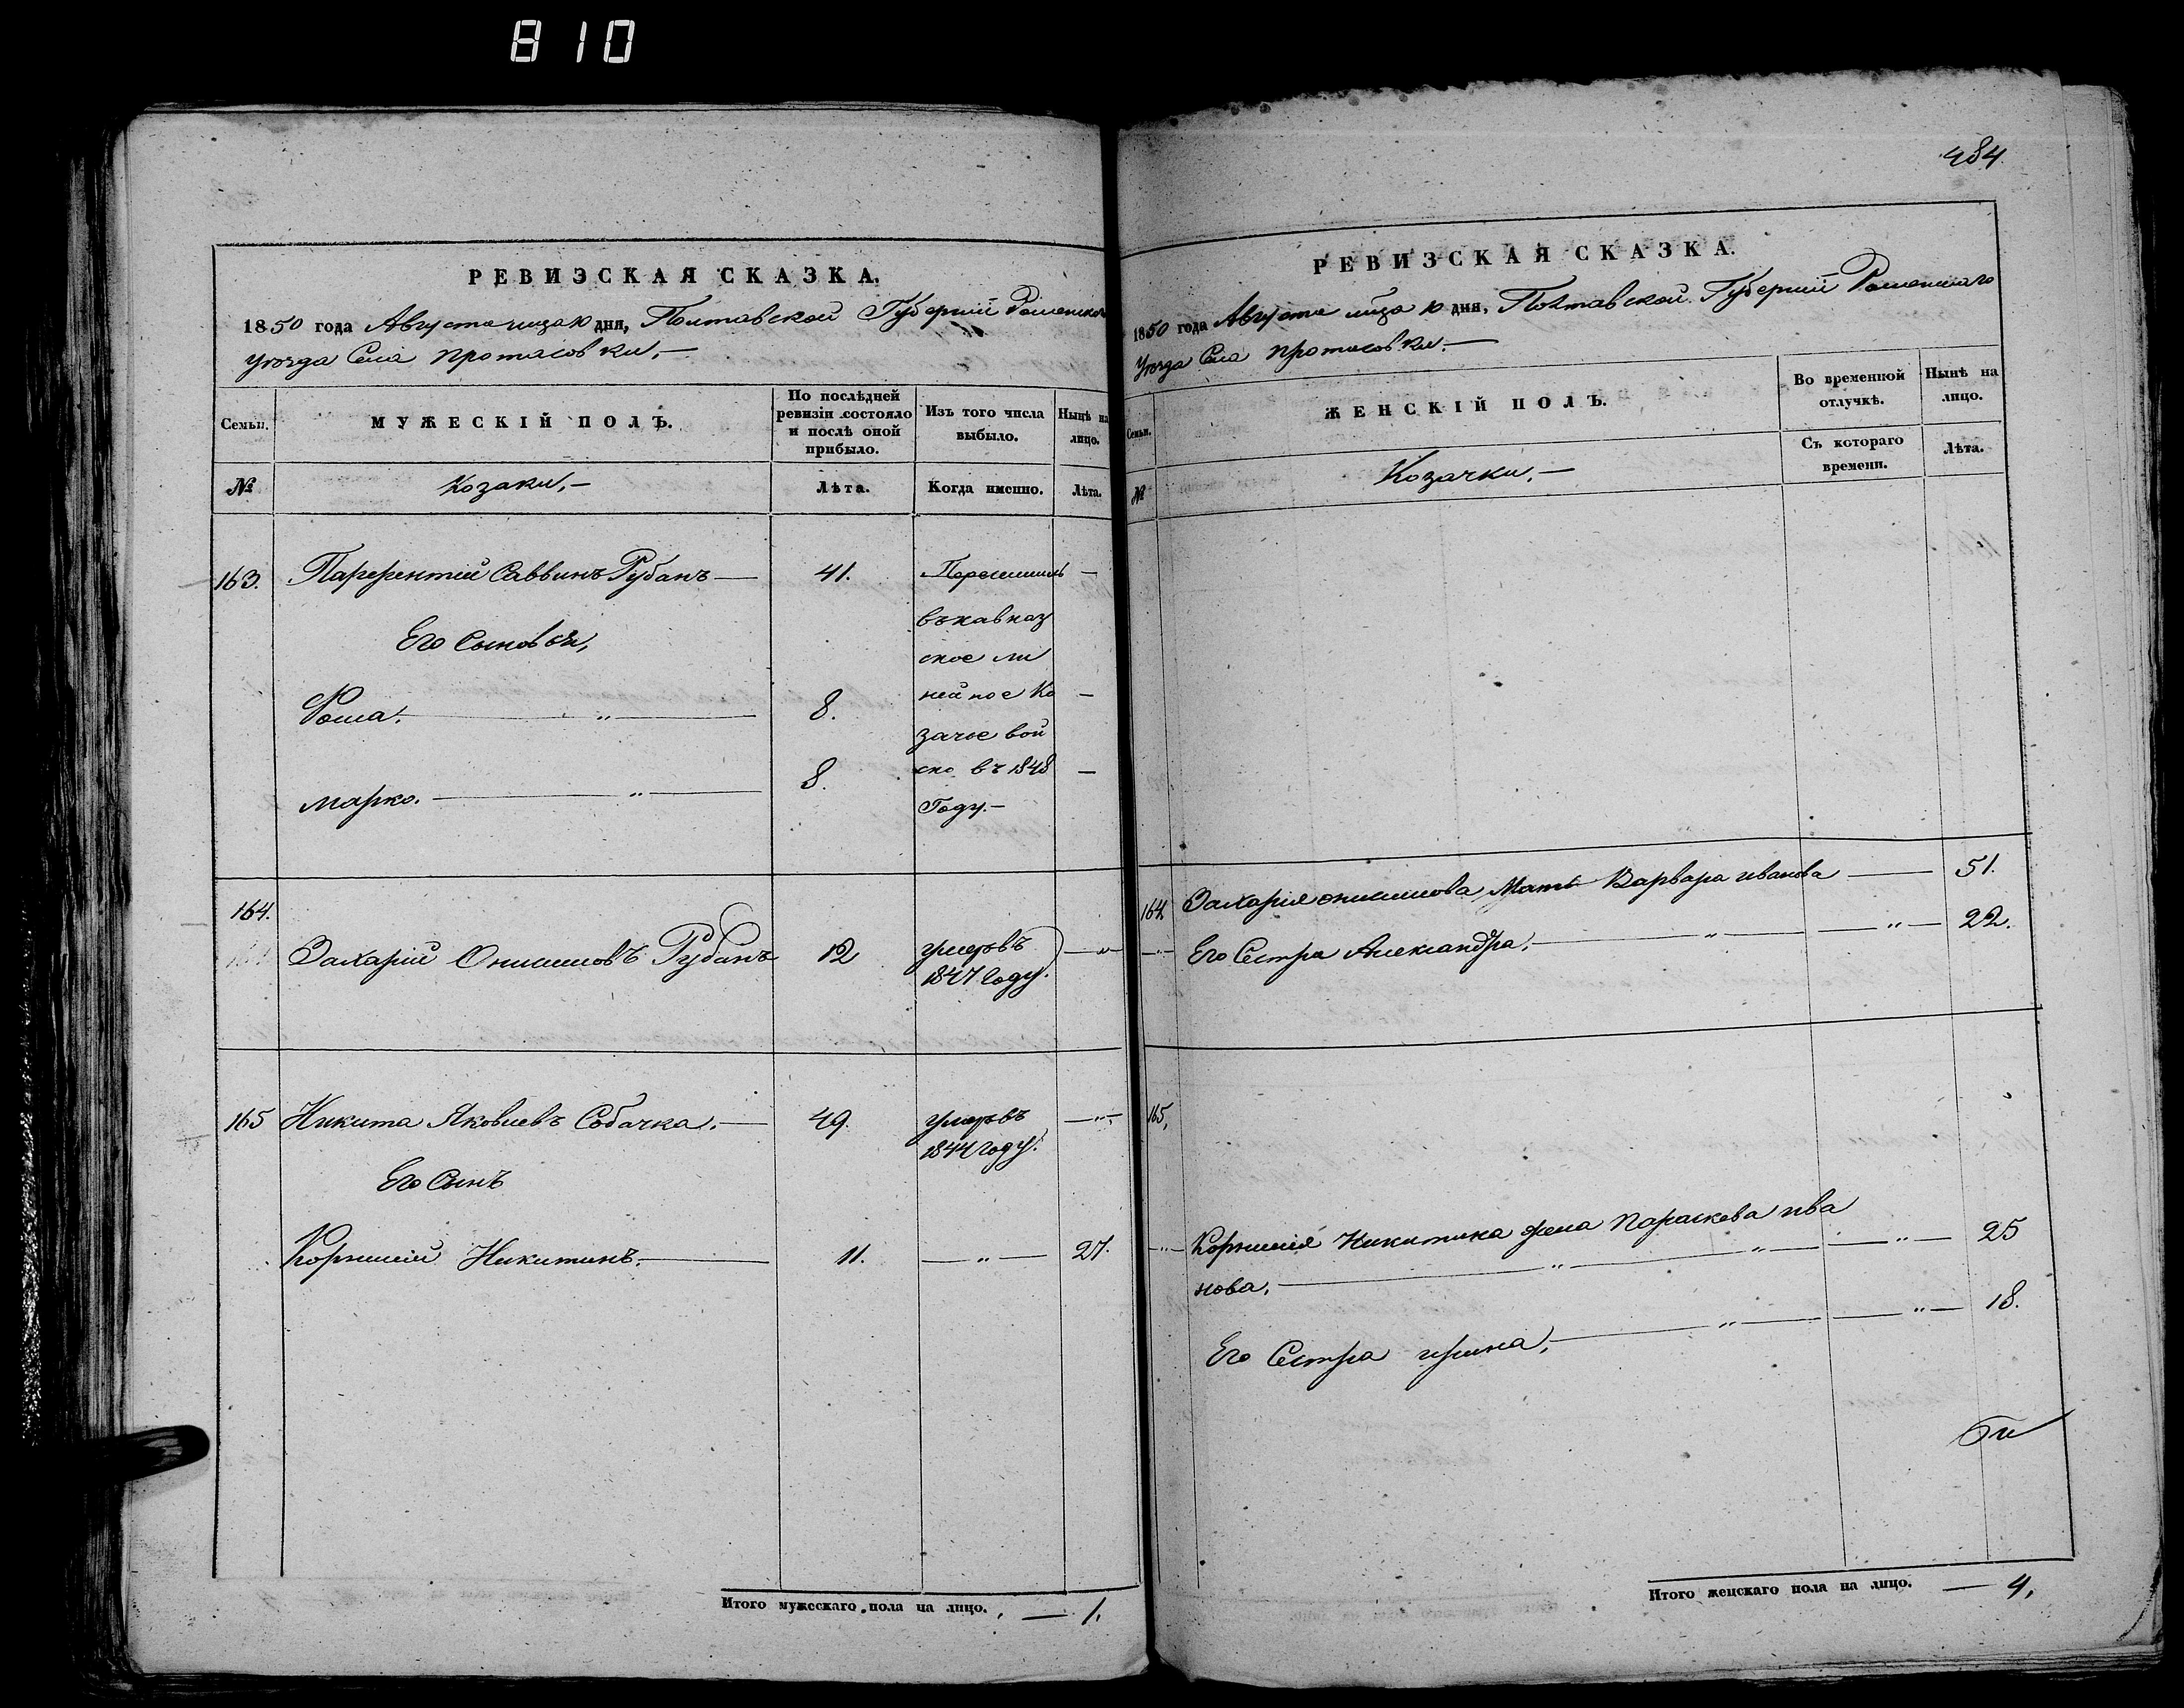 810
РЕВИЗСКАЯ СКАЗКА.
1850 года Августа мца 10 дня, Полтавской Губерніи Роменского
Уезда Села Протасовки,—
Семьи. МУЖЕСКІЙ ПОЛЪ. По послѣдней ревизіи состояло и послѣ оной прибыло. Изъ того числа выбыло. Нынѣ на лицо.
№ Козаки,— Лѣта. Когда именно. Лѣта.
163. Парфентій Саввинъ Рубанъ — 41. Переселились —
въ кавказ
Его Сыновья,
ское ли
Фома. — „ — 8. нейное Ко —
зачье вой
Марко. — „ — 8. ско въ 1848 —
Году.—
164.
Захарій Онисимовъ Рубанъ 12 умеръ въ — „ —
1847 Году.
165 Никита Яковлевъ Собачка. — 49. умеръ въ — „ —
1844 году.
Его Сынъ
Корнилій Никитинъ. — 11. — „ — 27.
Итого мужескаго пола на лицо. — 1.
484
РЕВИЗСКАЯ СКАЗКА.
1850 года Августа мца 10 дня, Полтавской Губерніи Роменскаго
Уезда Села Протасовки.—
Семьи. ЖЕНСКІЙ ПОЛЪ. Во временной отлучкѣ. Нынѣ на лицо.
№ Козачки.— Съ котораго времени. Лѣта.
164. Захарія Онисимова Мать Варвара иванова — 51.
— „ — Его Сестра Александра. — „ — — „ — 22.
165,
— „ — Корнилія Никитина жена Параскева ива
нова. — „ — „ — — „ — 25
Его Сестра ирина, — „ — — „ — 18.
Итого женскаго пола на лицо. — 4.